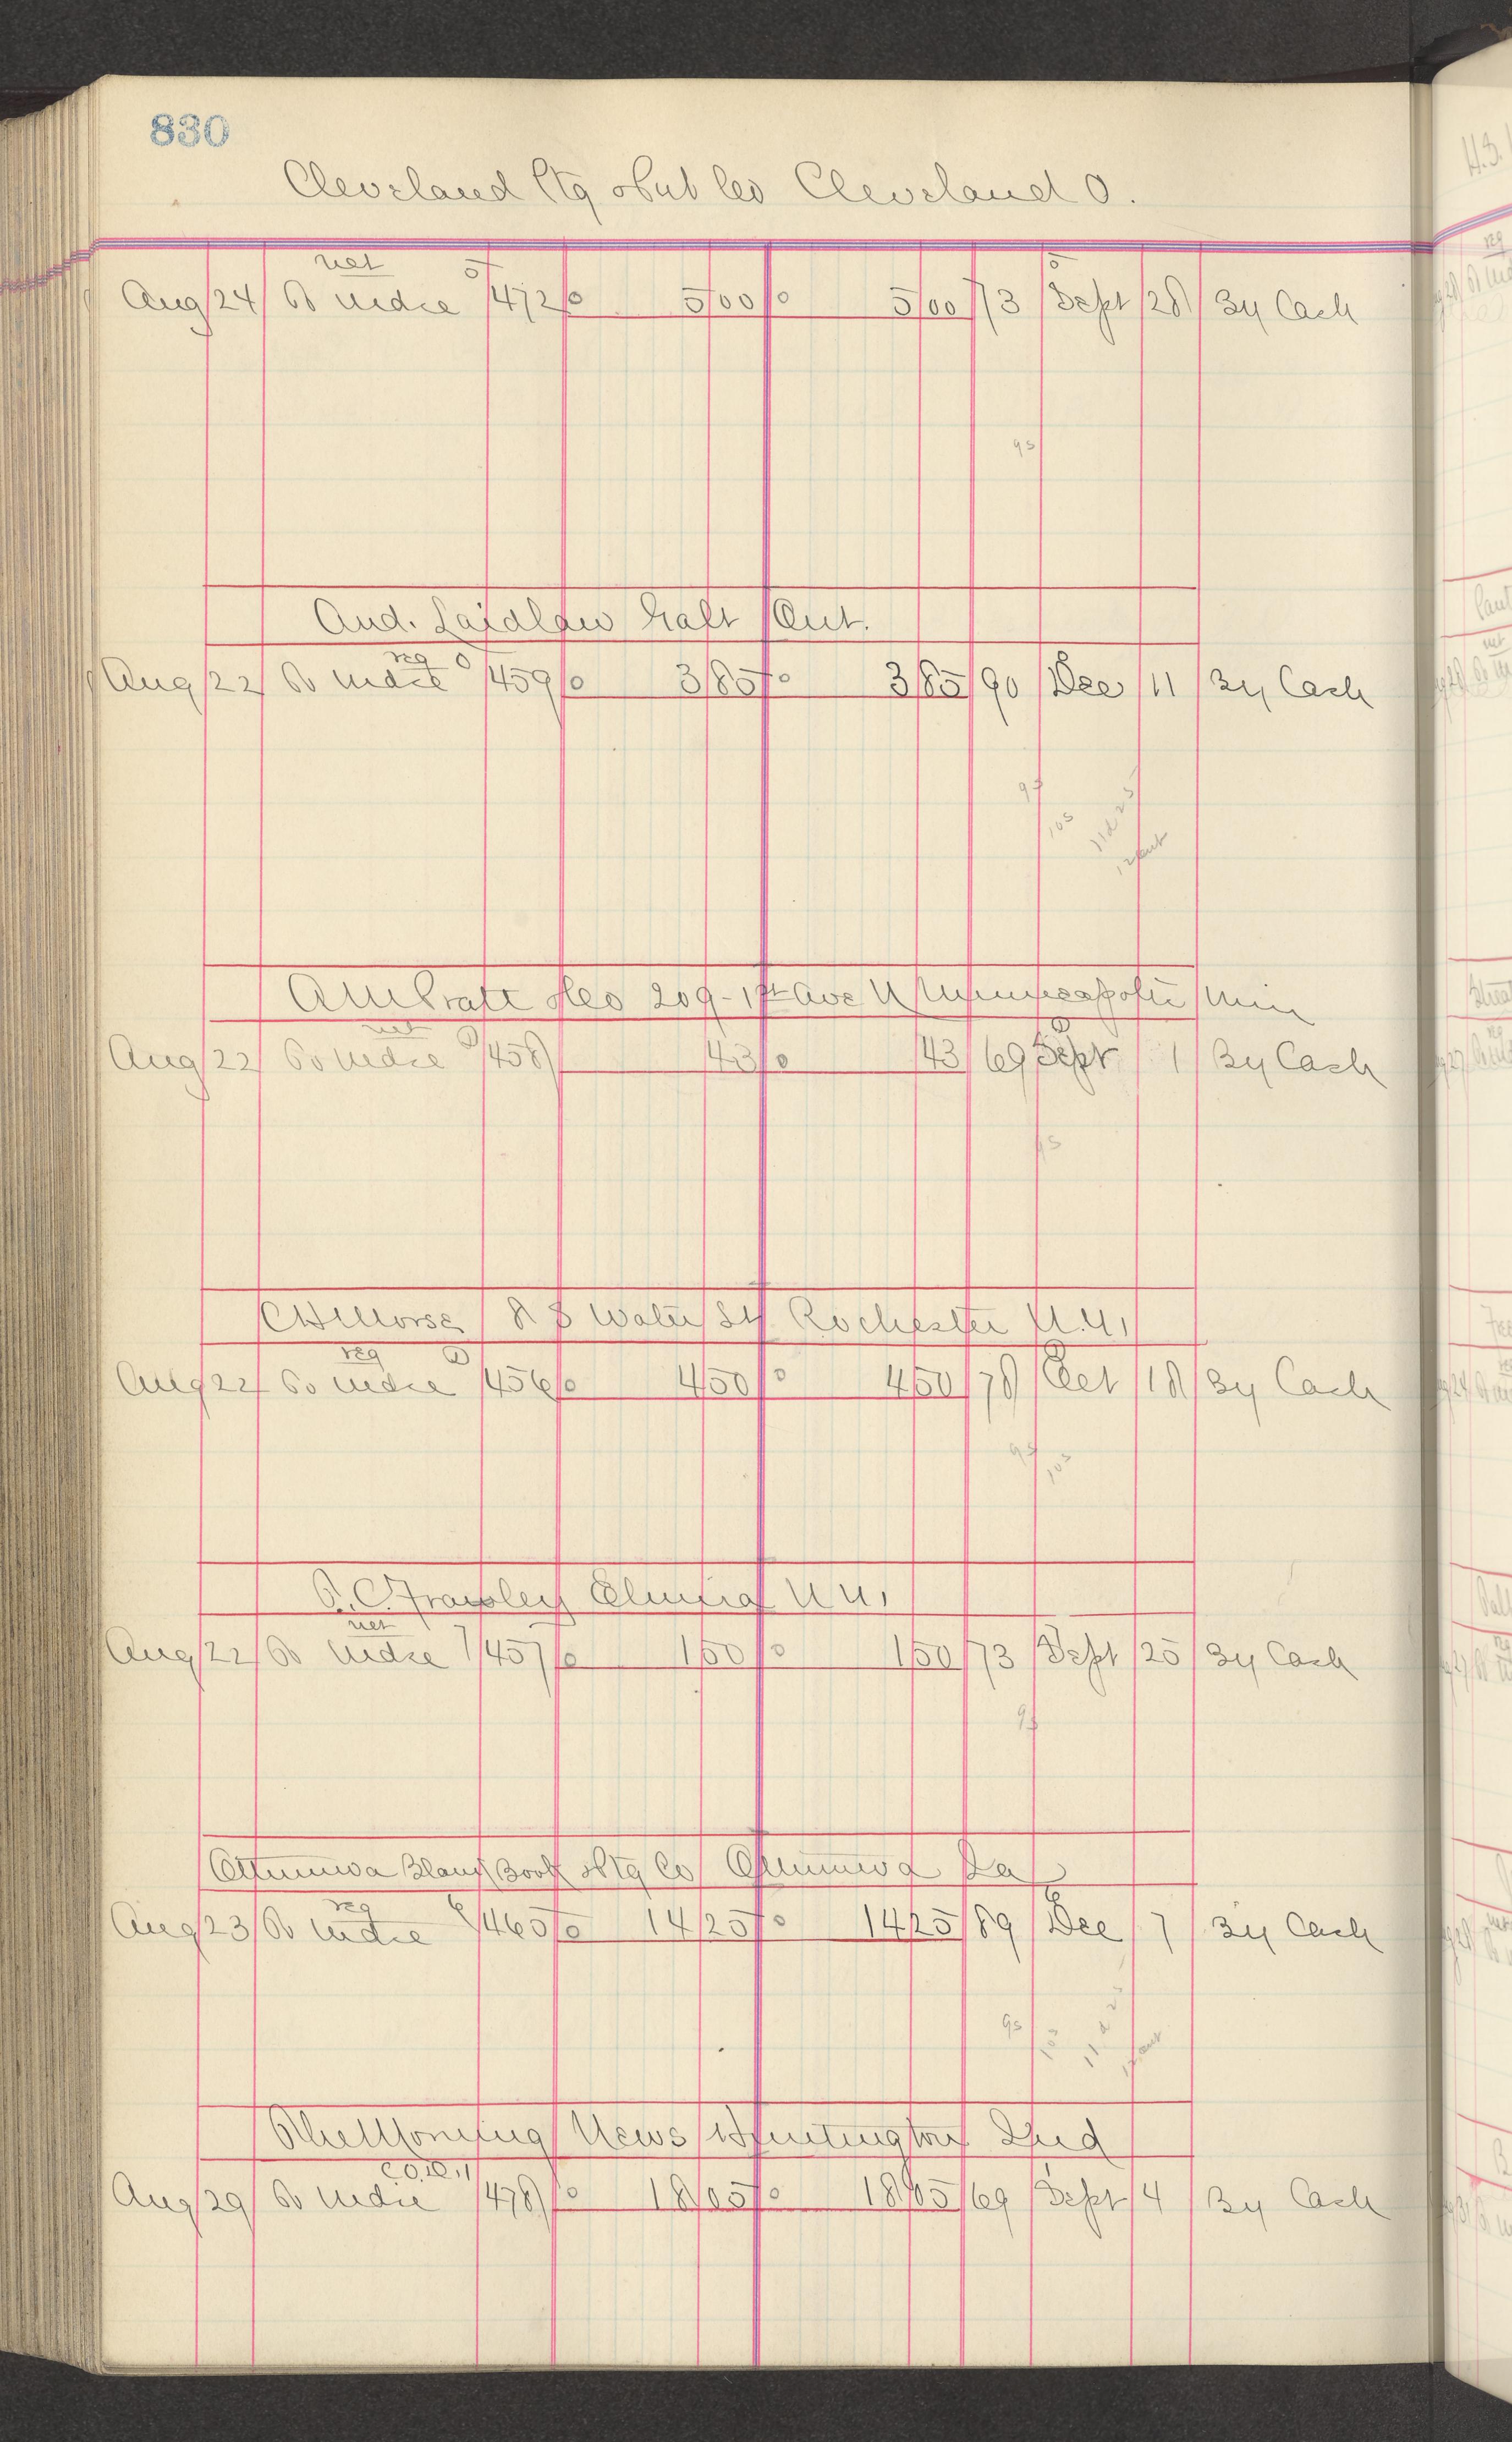 830
Cleveland Ptg & Pub Co Cleveland O.
net
Aug 24 To Mdse 472 5 00 5 00 73 Sept 28 By Cash
95
And. Laidlaw Galt Ont.
reg
Aug 22 To Mdse 459 3 85 3 85 90 Dec 11 By Cash
95
105
11 d 25
12 out
& Co 209 - 1st Ave N Minneapolis Min
net
Aug 22 To Mdse 458 43 43 69 Sept 1 By Cash
95
C H Morse 8 S Water St Rochester N.Y.
reg
Aug 22 To Mdse 456 4 50 4 50 78 Oct 18 By Cash
95
105
Frawley Elmira N Y.
net
Aug 22 To Mdse 457 1 50 1 50 73 Sept 25 By Cash
95
Ottumwa Blank Book & Ptg Co Ottumwa Ia
reg
Aug 23 To Mdse 465 14 25 14 25 89 Dec 7 By Cash
95
105
11 d 25
12 out
The Morning News Huntington Ind
C.O.D.
Aug 29 To Mdse 478 18 05 18 05 69 Sept 4 By Cash